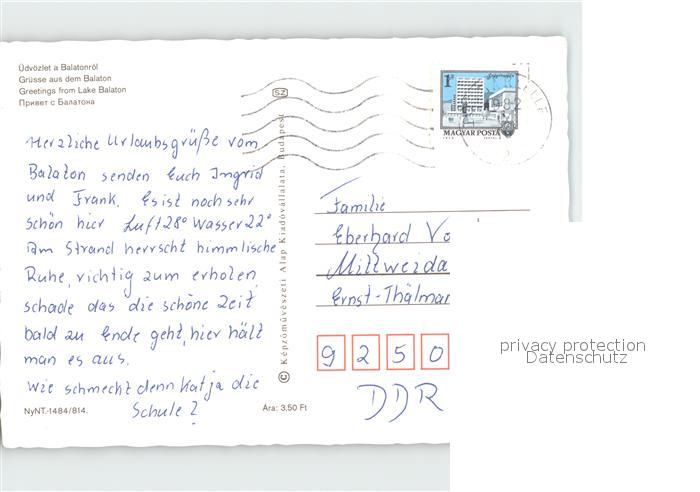 Üdvözlet a Balatonról
Grüsse aus dem Balaton
Greetings from Lake Balaton
Привет с Балатона
SZ
1Ft
MAGYAR POSTA
Herzliche Urlaubsgrüße vom
Balaton senden Euch Ingrid
und Frank. Es ist noch sehr
schön hier Luft 28° Wasser 22°
Am Strand herrscht himmlische
Ruhe, richtig zum erholen,
schade das die schöne Zeit
bald zu Ende geht, hier hält
man es aus.
Wie schmeckt denn Katja die
Schule?
NyNT.-1484/814.
Ára: 3,50 Ft
© Képzőművészeti Alap Kiadóvállalata, Budapest
Familie
Eberhard Vo
Mittweida
Ernst-Thälmar
9250
DDR
privacy protection
Datenschutz